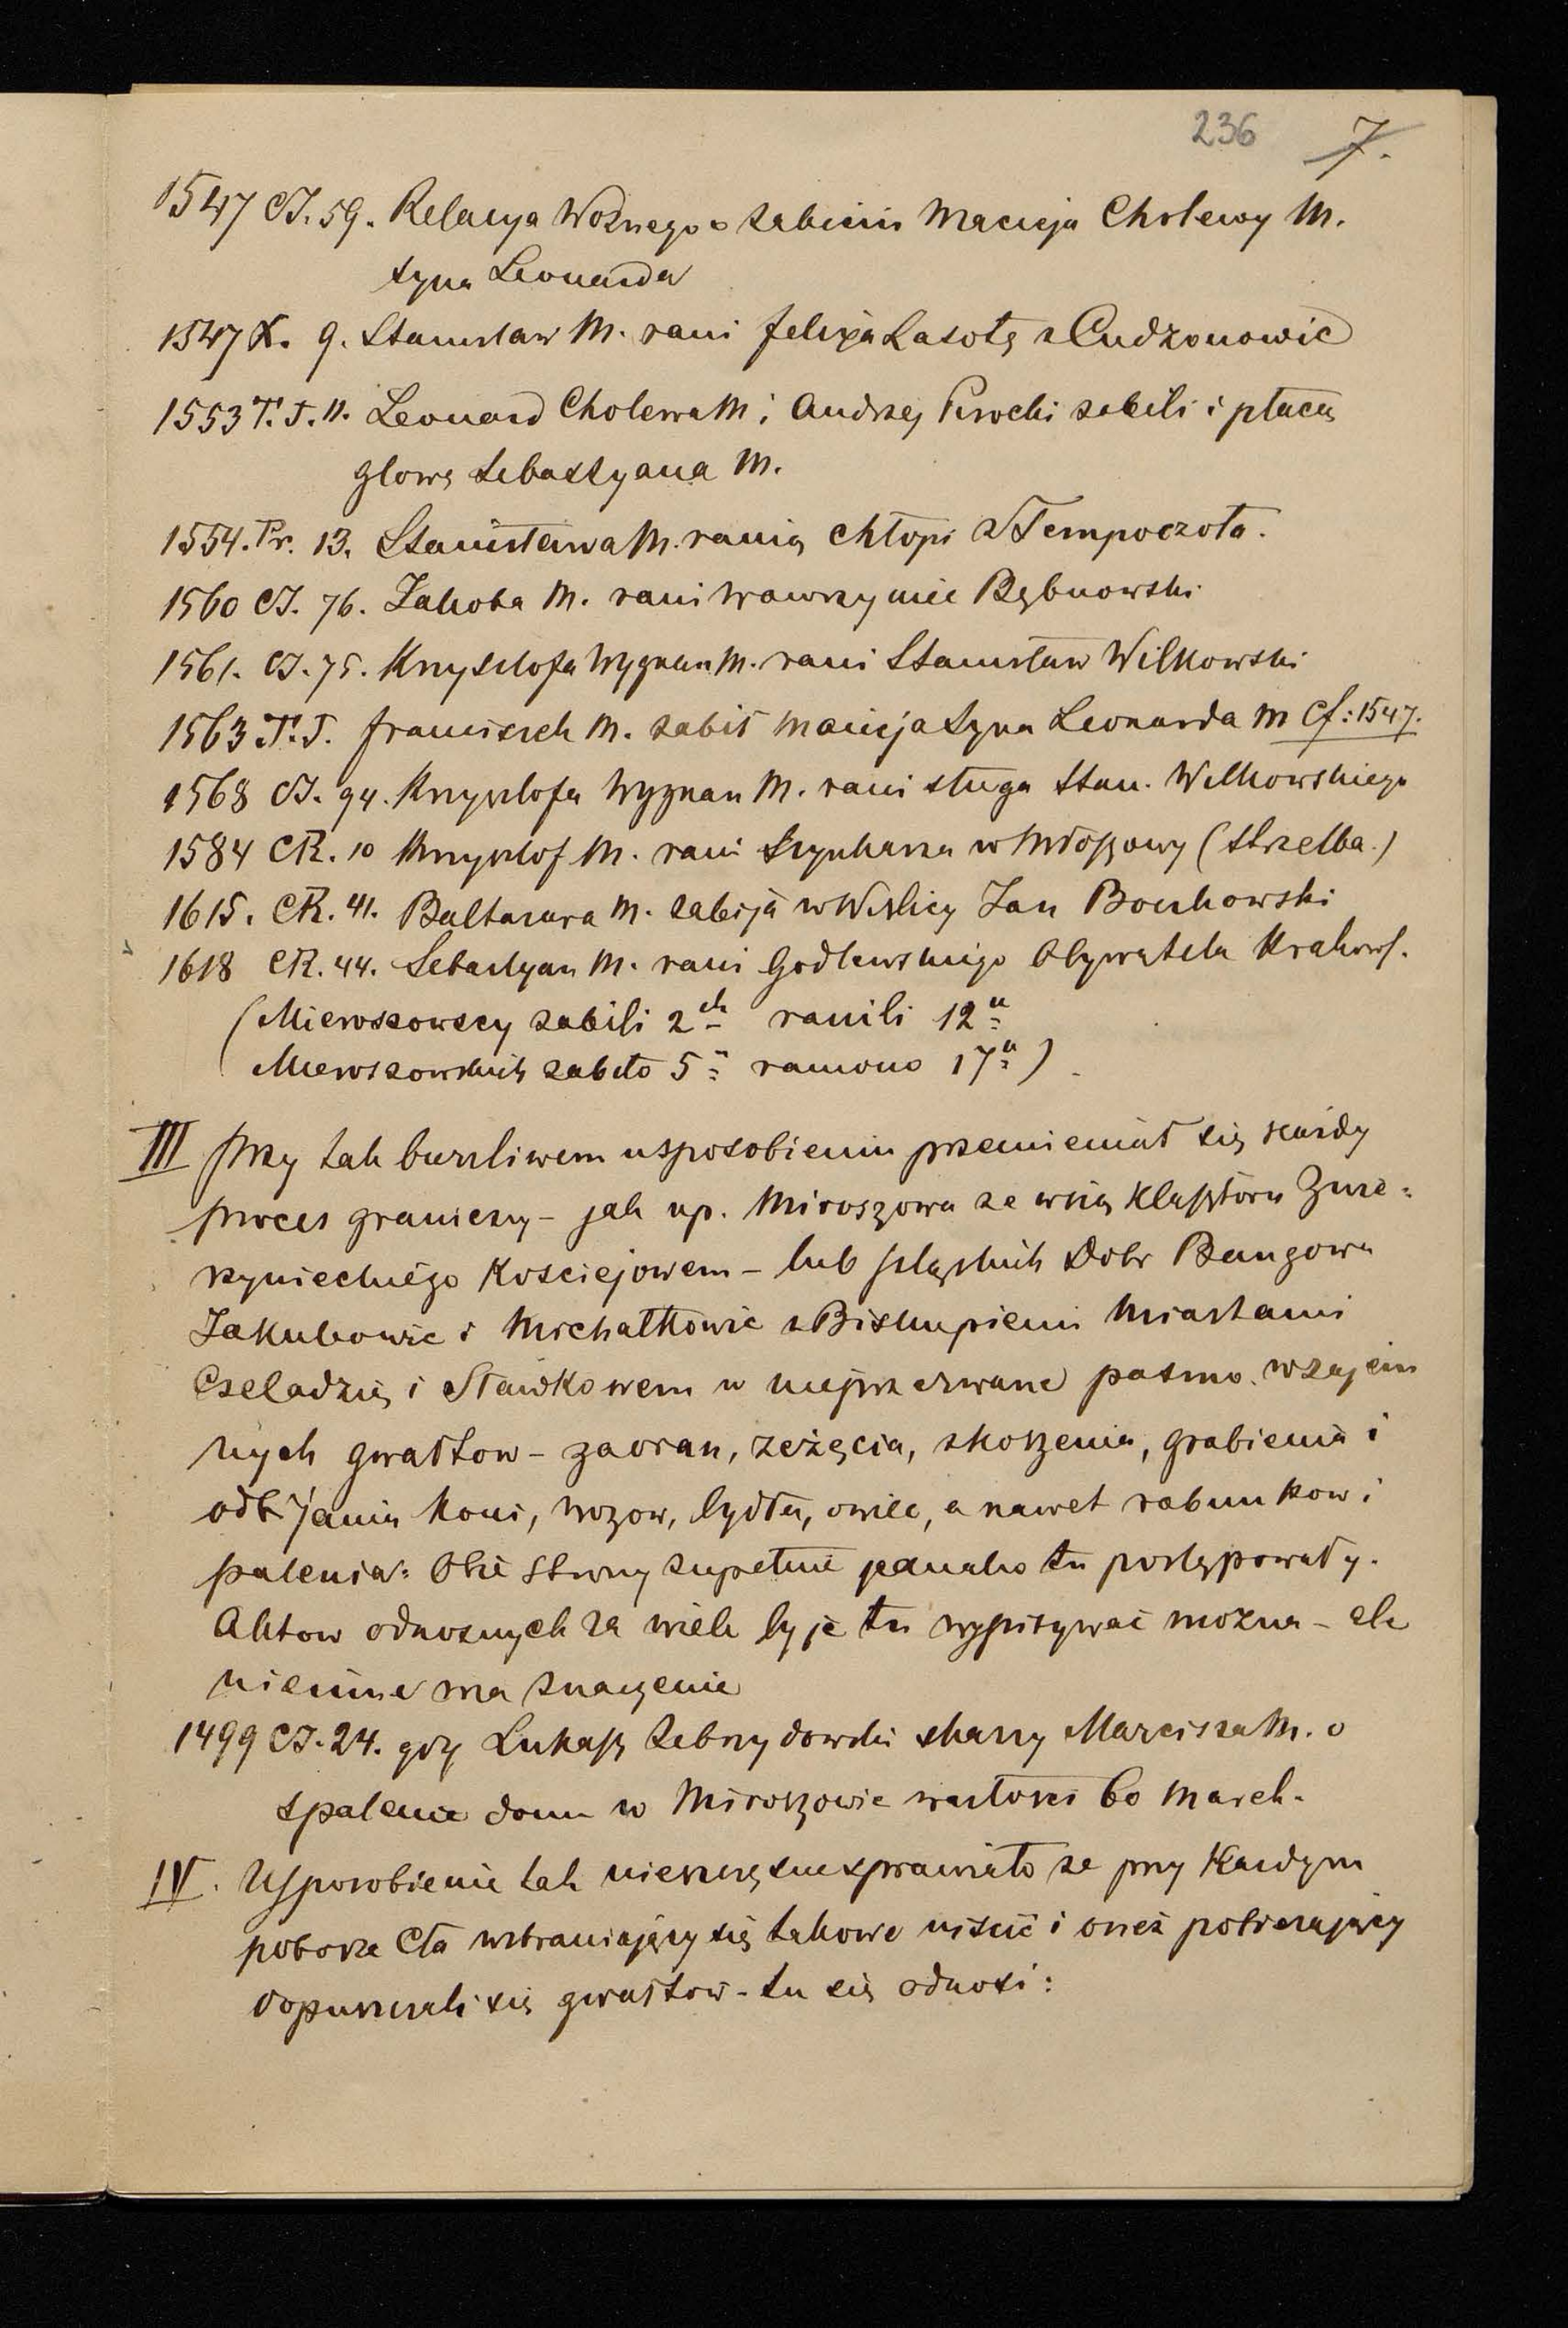 236 7.
1547 CJ. 59. Relacya Woznego o zabiciu Macieja Cholewy M.
syna Leonarda
1547 X. 9. Stanislaw M. rani felixa Lasotę z Cudzonowic
1553 T. J. 11. Leonard Cholewa M i Andrzej zabili i płacą
głowę Sebastyana M.
1554. Pr. 13. Stanisława M. ranią chłopi z Tempoczoła.
1560 CJ. 76. Jakoba M. rani Wawrzyniec Bębnowski
1561. CJ. 75. Krysztofa Wygnan M. rani Stanisław Wilkowski
1563 T. J. franciszek M. zabił Macieja syna Leonarda M Cf: 1547.
1568 CJ. 94. Krysztofa Wygnan M. rani sługa Stan. Wilkowskiego
1584 CR. 10 Krysztof M. rani Szynkarza w (strzelba.)
1615. CR. 41. Baltazara M. zabija w Wiślicy Jan Bochowski
1618 CR. 44. Sebastyan M. rani Godlewskiego Obywatela Krakows.
(Mieroszowscy zabili 2ch ranili 12u
Mieroszowskich zabito 5u raniono 17u)
III przy tak burzliwem usposobieniu przemieniał się każdy
proces graniczny – jak np. Miroszowa ze wsią klasztoru Zwie=
rzynieckiego Kościejowem – lub szląskich Dobr Bangowa
Jakubowic i Michałkowic z Biskupiemi Miastami
Czeladzią i Sławkowem w nieprzerwane pasmo wzajem
nych gwałtow – zaoran, zeżęcia, skoszenia, grabienia i
odbijania koni, wozow, bydła, owiec, a nawet rabunkow i
palenia: Obie strony zupełnie jednako tu postępowały.
Aktow odnosnych za wiele by je tu wypisywać mozna – ale
nieinne ma znaczenie
1499 CJ. 24. gdy Lukasz Zebrzydowski skarzy Marcisza M. o
spalenie domu w Miroszowie wartości 60 march.
IV. Usposobienie tak nieszczęsne sprawiało ze przy Kazdym
poborze Cła wzbraniający się takowe uiscić i oneż pobierający
dopuszczali się gwałtow – tu się odnosi: